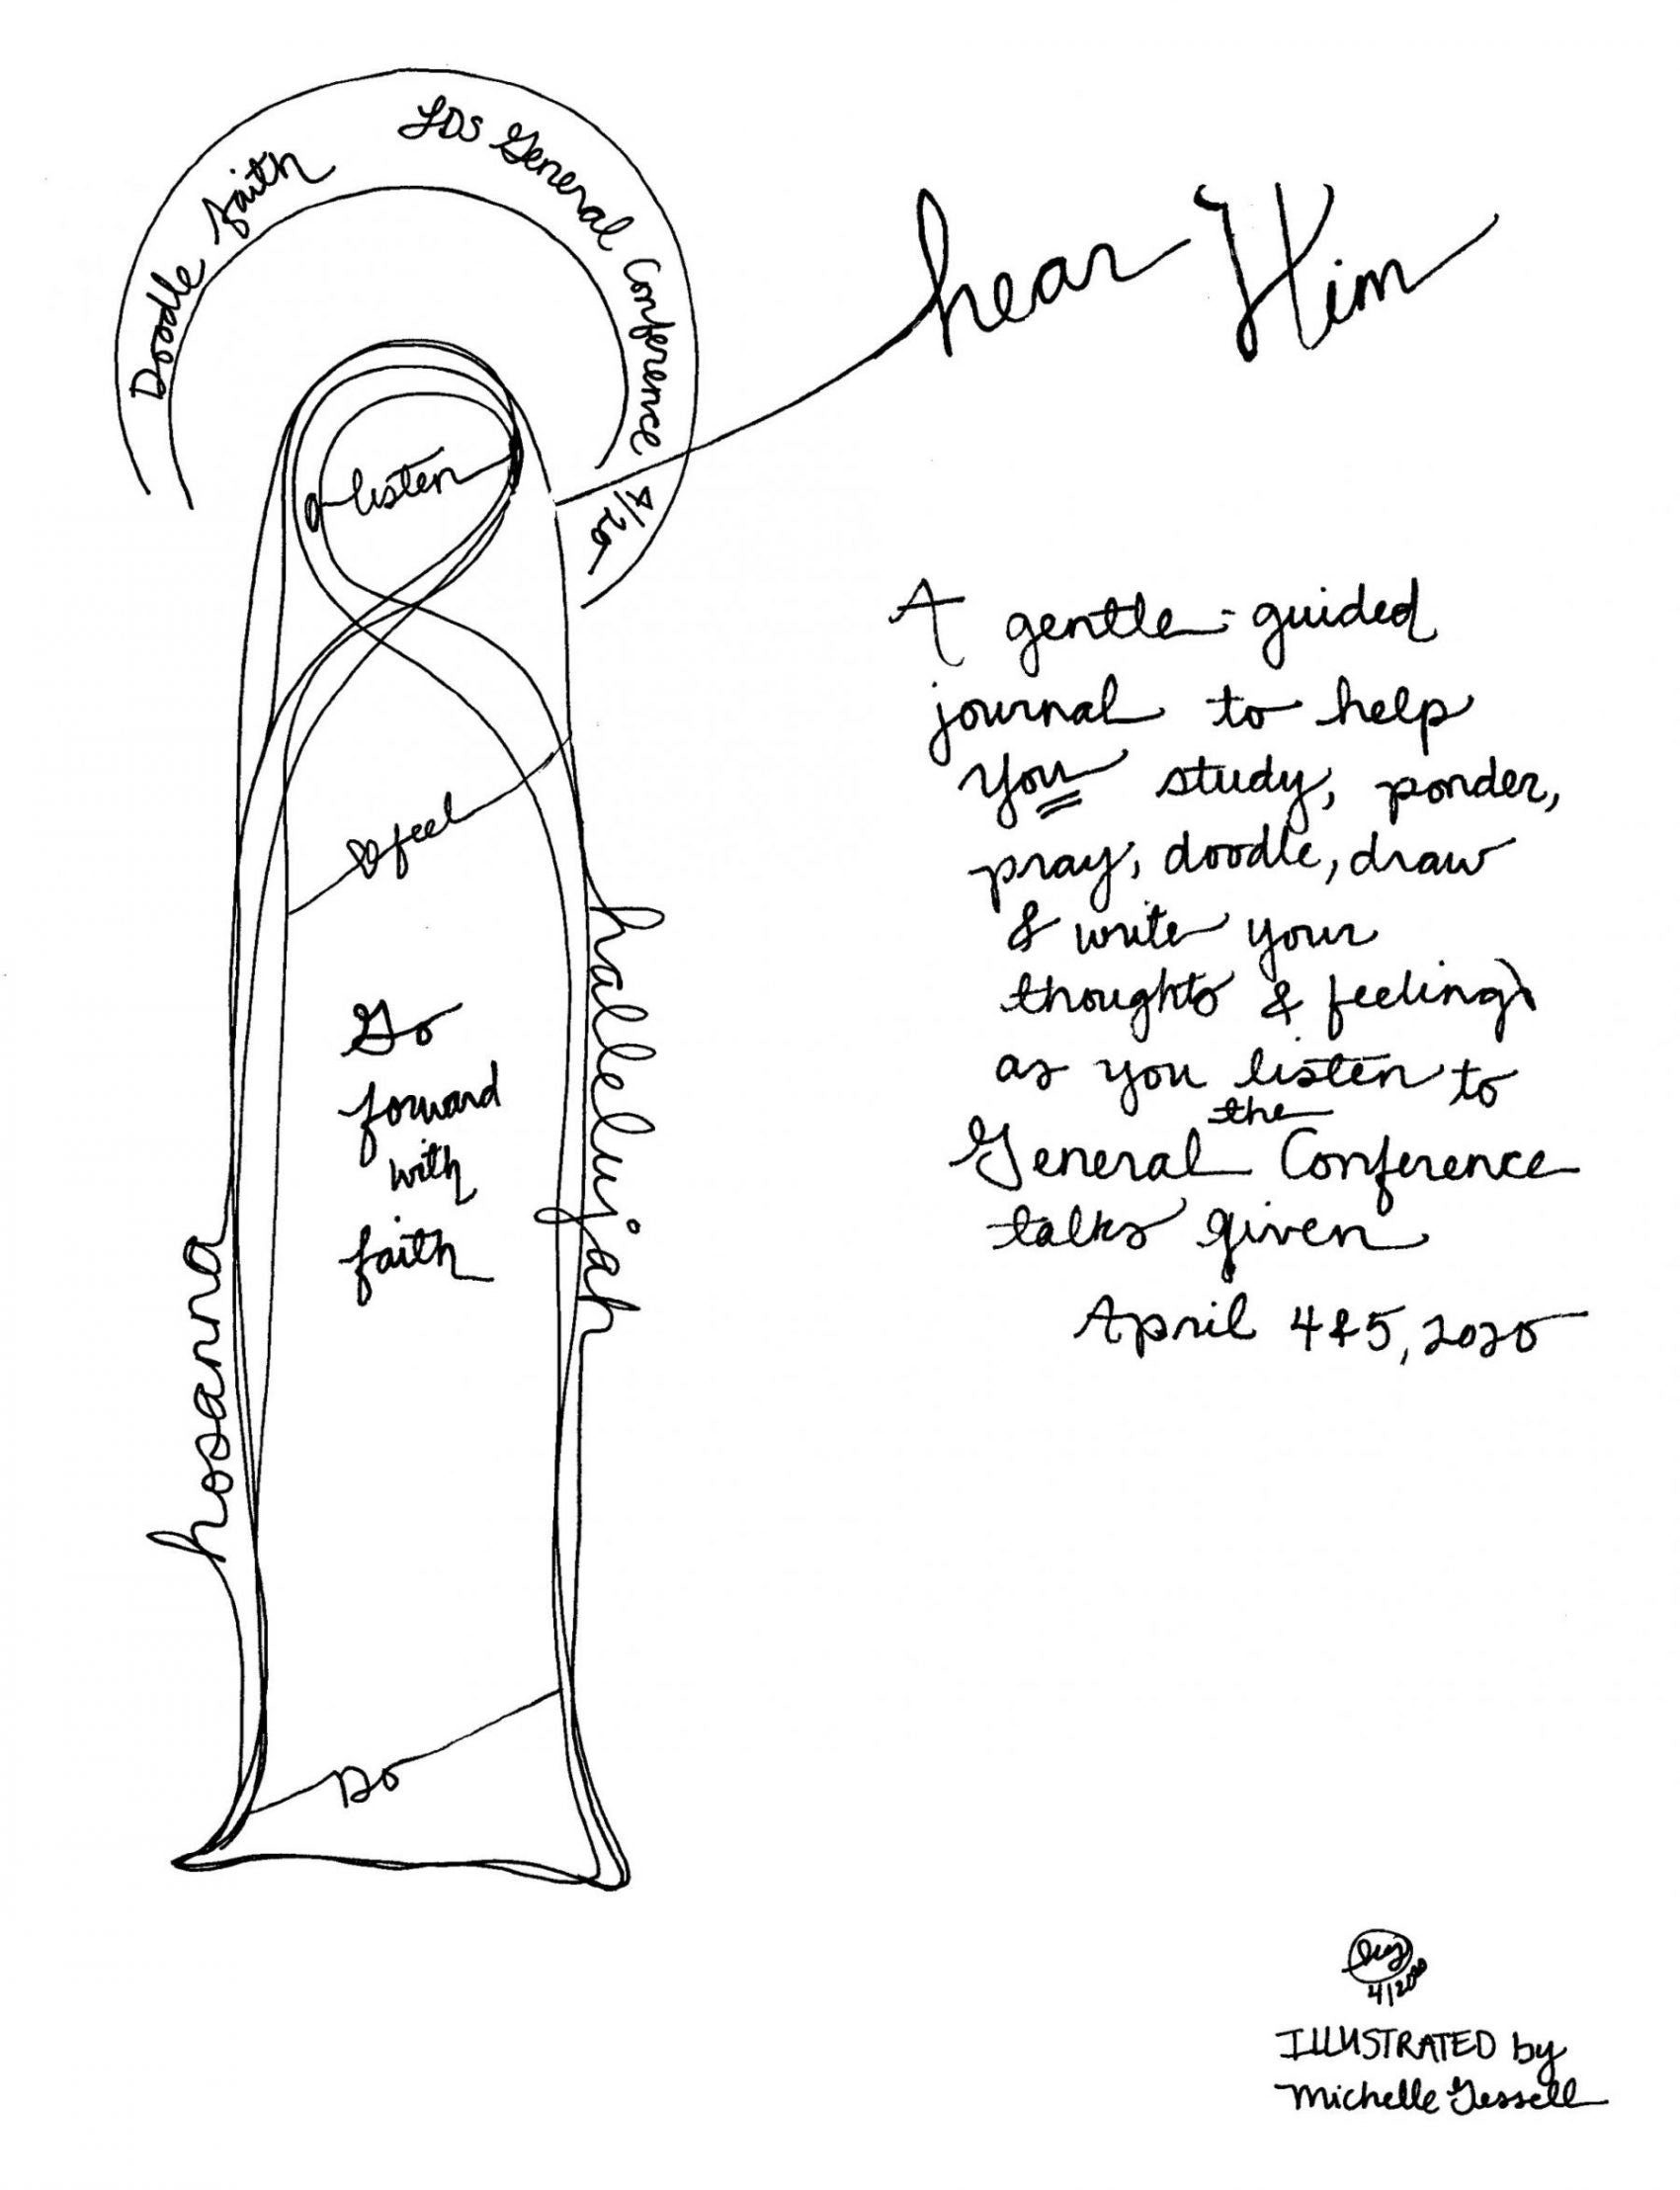 Doodle faith
LDS General Conference
4/20
hear Him
listen
feel
Go
forward
with
faith
hosanna
hallelujah
Do
A gentle-guided
journal to help
you study, ponder,
pray, doodle, draw
& write your
thoughts & feelings
as you listen to
the
General Conference
talks given
April 4&5, 2020
4/20
ILLUSTRATED by
Michelle Gessell